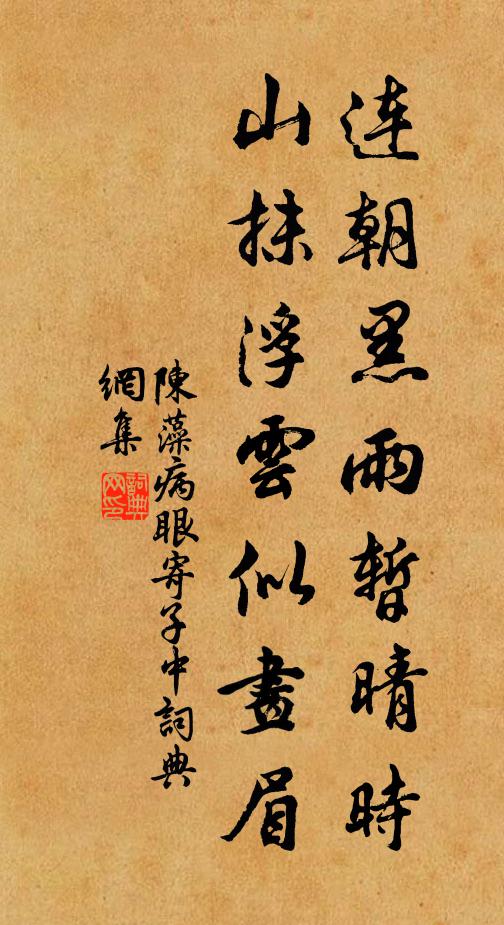 連朝黑雨暫晴時
山抹浮雲似畫眉
陳藻病眼寄子中詞典
網集
詞典
网印